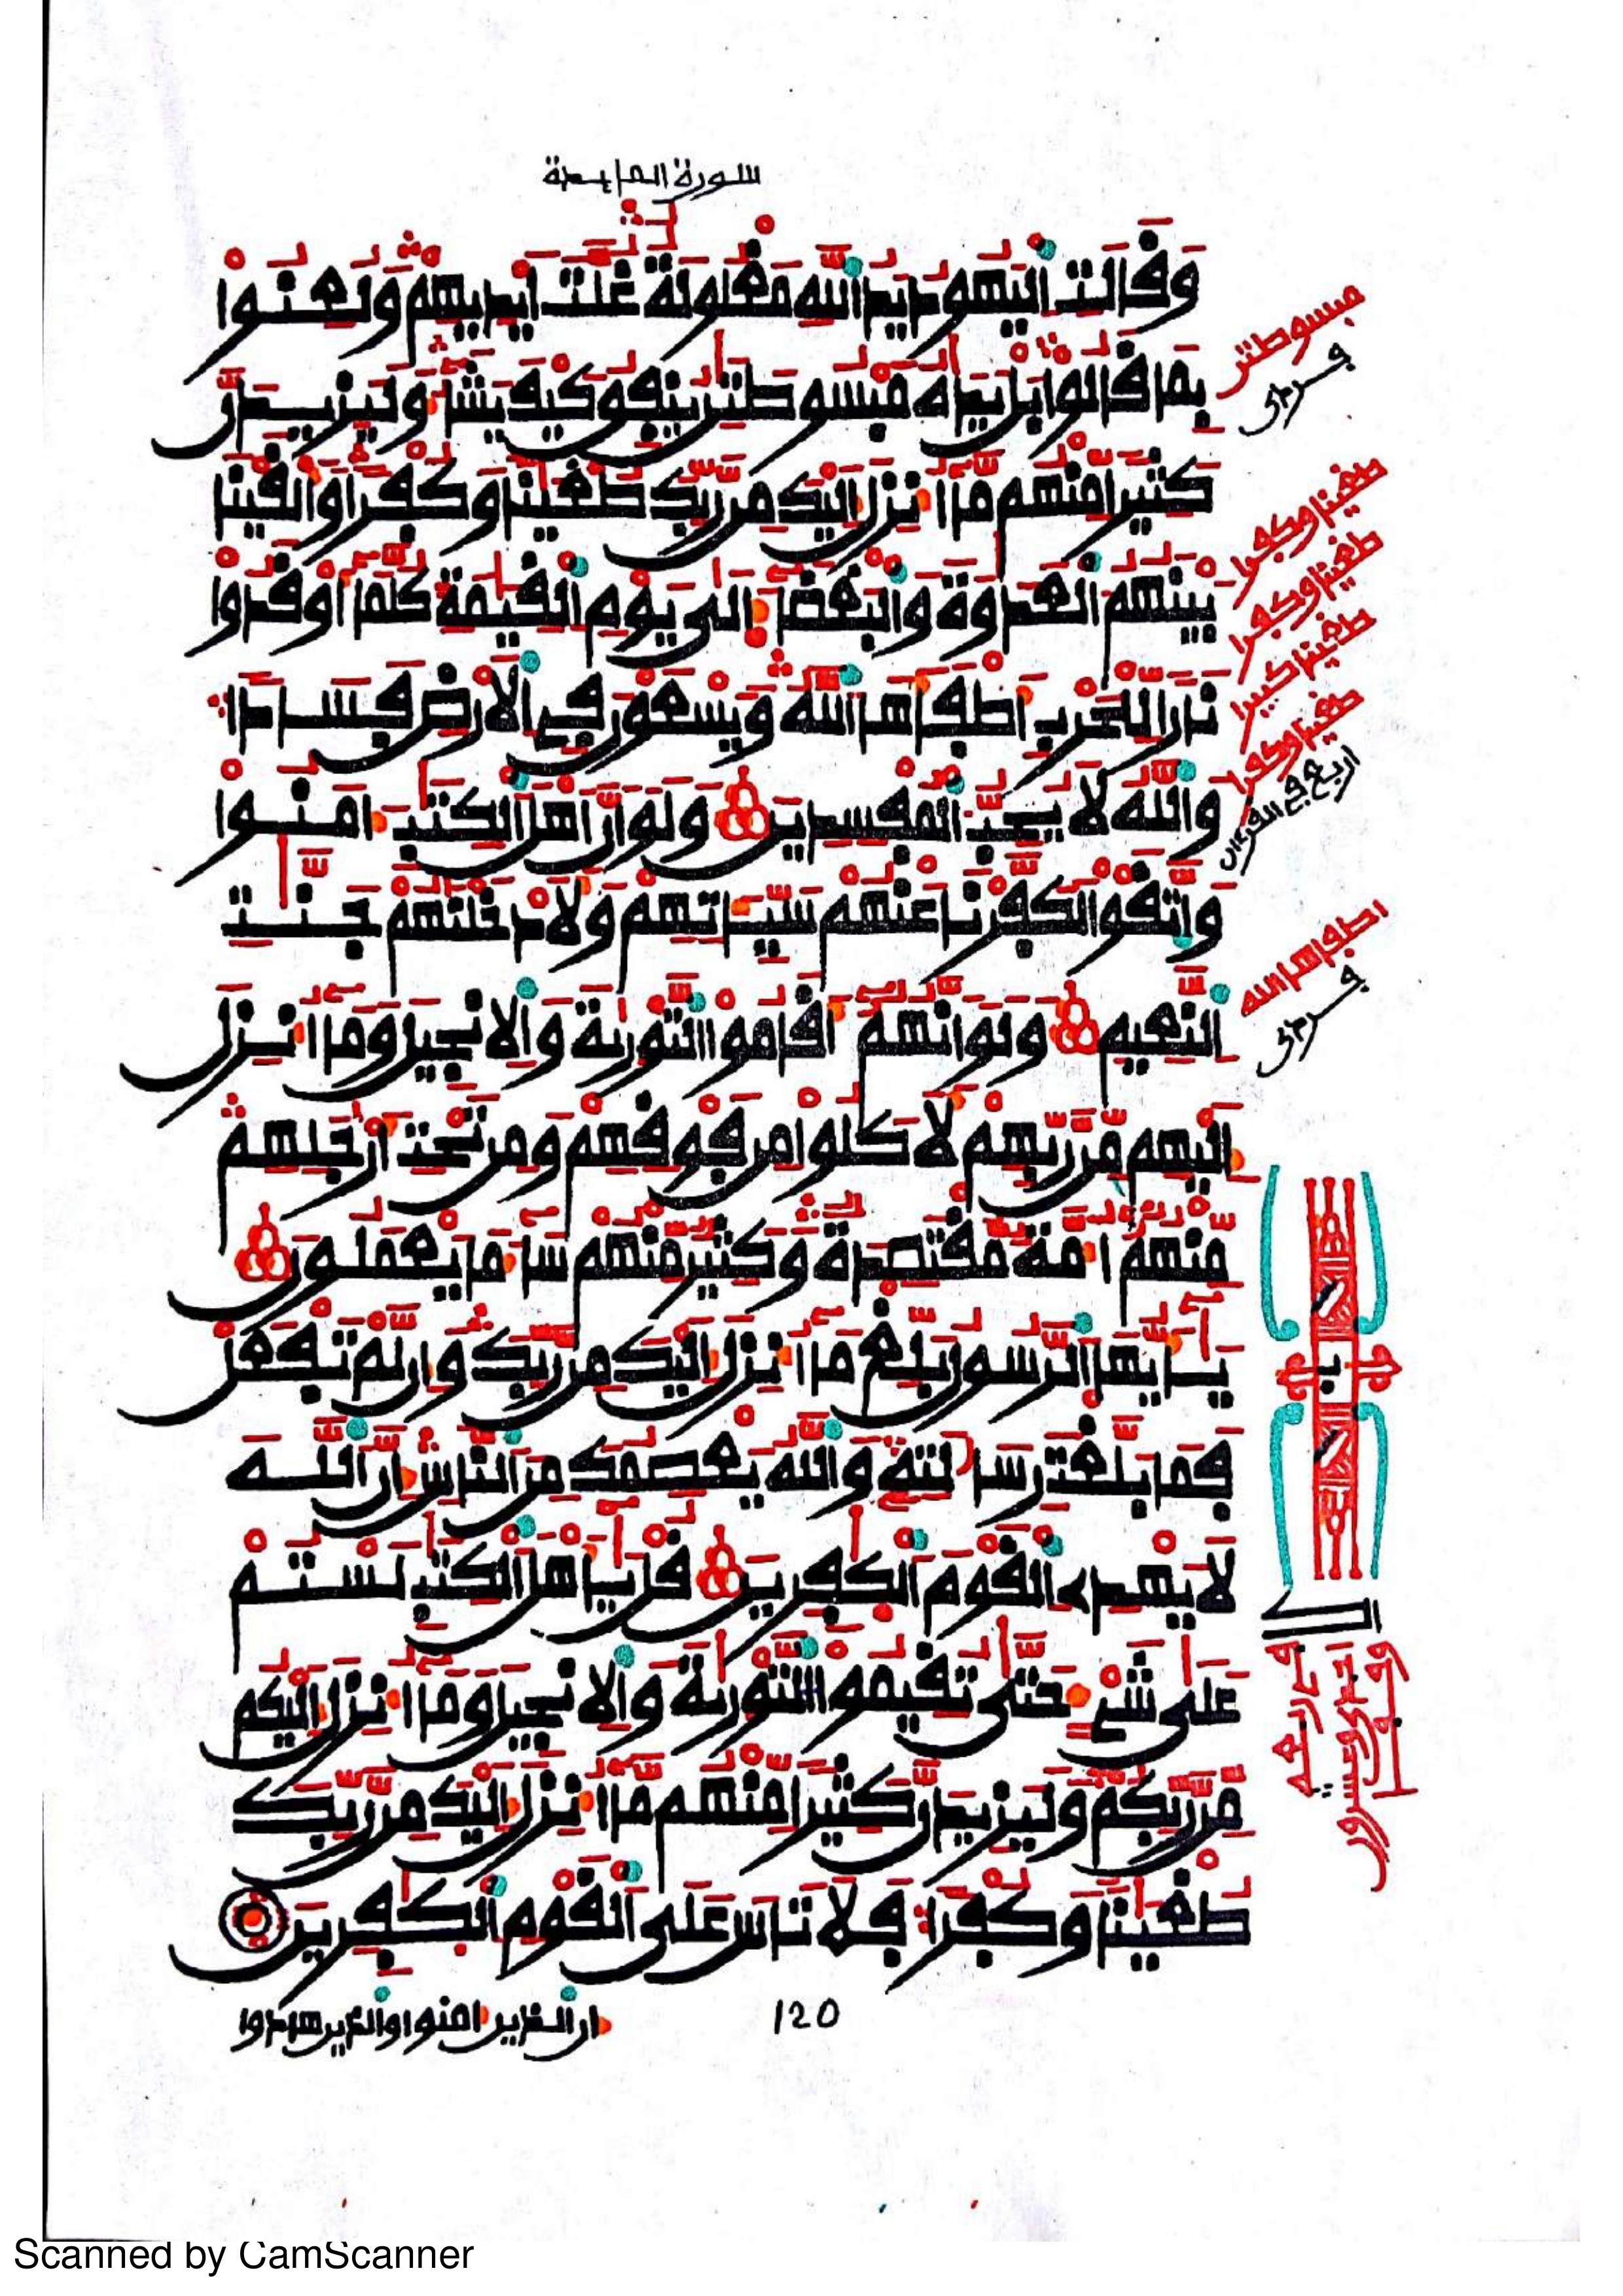 سورة المايدة
وَقَالَتِ الْيَهُودُ يَدُ اللَّهِ مَغْلُولَةٌ غُلَّتْ أَيْدِيهِمْ وَلُعِنُوا
بِمَا قَالُوا بَلْ يَدَاهُ مَبْسُوطَتَنِ يُنفِقُ كَيْفَ يَشَاءُ وَلَيَزِيدَنَّ
كَثِيرًا مِّنْهُم مَّا أُنزِلَ إِلَيْكَ مِن رَّبِّكَ طُغْيَنًا وَكُفْرًا وَأَلْقَيْنَا
بَيْنَهُمُ الْعَدَوَةَ وَالْبَغْضَاءَ إِلَى يَوْمِ الْقِيَمَةِ كُلَّمَا أَوْقَدُوا
نَارًا لِّلْحَرْبِ أَطْفَأَهَا اللَّهُ وَيَسْعَوْنَ فِي الْأَرْضِ فَسَادًا
وَاللَّهُ لَا يُحِبُّ الْمُفْسِدِينَ وَلَوْ أَنَّ أَهْلَ الْكِتَبِ ءَامَنُوا
وَاتَّقَوْا لَكَفَّرْنَا عَنْهُمْ سَيِّئَاتِهِمْ وَلَأَدْخَلْنَهُمْ جَنَّتِ
النَّعِيمِ وَلَوْ أَنَّهُمْ أَقَامُوا التَّوْرَيةَ وَالْإِنجِيلَ وَمَا أُنزِلَ
إِلَيْهِم مِّن رَّبِّهِمْ لَأَكَلُوا مِن فَوْقِهِمْ وَمِن تَحْتِ أَرْجُلِهِم
مِّنْهُمْ أُمَّةٌ مُّقْتَصِدَةٌ وَكَثِيرٌ مِّنْهُمْ سَاءَ مَا يَعْمَلُونَ
يَأَيُّهَا الرَّسُولُ بَلِّغْ مَا أُنزِلَ إِلَيْكَ مِن رَّبِّكَ وَإِن لَّمْ تَفْعَلْ
فَمَا بَلَّغْتَ رِسَالَتِهِ وَاللَّهُ يَعْصِمُكَ مِنَ النَّاسِ إِنَّ اللَّهَ
لَا يَهْدِي الْقَوْمَ الْكَفِرِينَ قُلْ يَأَهْلَ الْكِتَبِ لَسْتُمْ
عَلَى شَيْءٍ حَتَّى تُقِيمُوا التَّوْرَيةَ وَالْإِنجِيلَ وَمَا أُنزِلَ إِلَيْكُم
مِّن رَّبِّكُمْ وَلَيَزِيدَنَّ كَثِيرًا مِّنْهُم مَّا أُنزِلَ إِلَيْكَ مِن رَّبِّكَ
طُغْيَنًا وَكُفْرًا فَلَا تَأْسَ عَلَى الْقَوْمِ الْكَفِرِينَ
120
إن الذين ءامنوا والذين هادوا
مبسوطتن
طغينا وكفرا
طغينا وكفرا
طغينا كبيرا
طغينا وكفرا
اربع في القرءان
اطفاها الله
Scanned by CamScanner